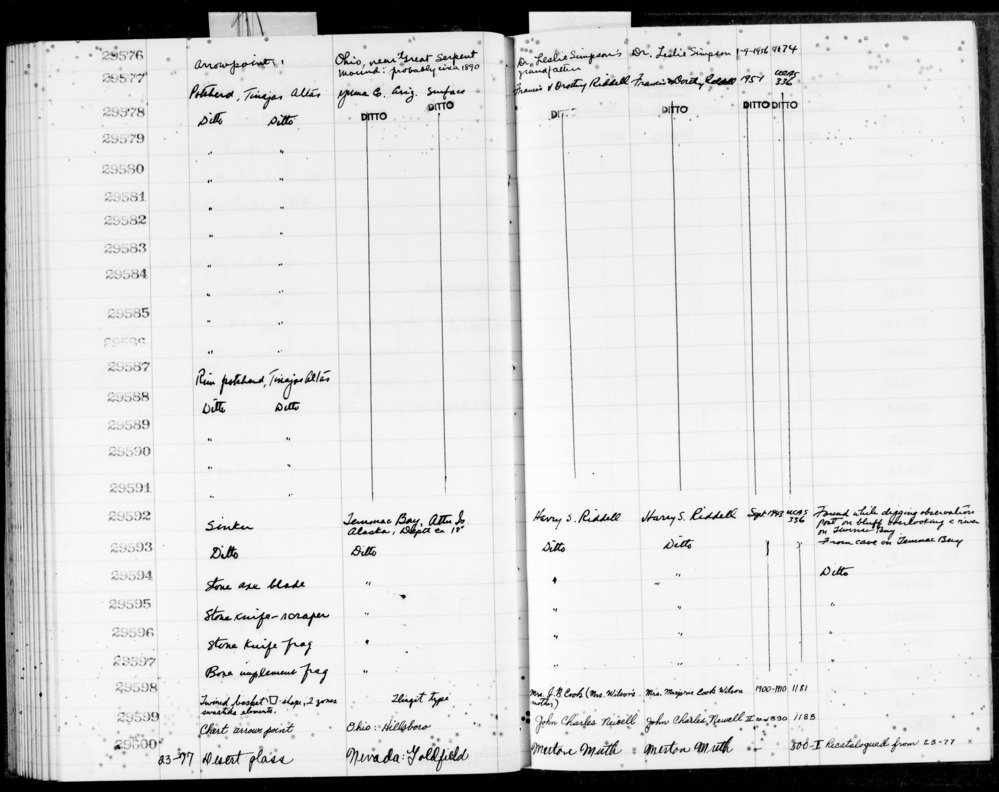 29576 arrowpoint Ohio, near Great Serpent Dr. Leslie Simpson's Dr. Leslie Simpson 1-9-1956 74
mound: probably circa 1890 grandfather
29577 Potsherd, Tinajas Altas Yuma C. Ariz. Surface Francis & Dorothy Riddell Francis & Dorothy Riddell 1951 UCAS 336
29578 Ditto Ditto DITTO DITTO DITTO DITTO DITTO
29579 " "
29580 " "
29581 " "
29582 " "
29583 " "
29584 " "
29585 " "
29586 " "
29587 Rim potsherd, Tinajas Altas
29588 Ditto Ditto
29589 " "
29590 " "
29591 " "
29592 Sinker Temnac Bay, Attu Is Harry S. Riddell Harry S. Riddell Sept 1943 UCAS 336 Found while digging observation
Alaska, Depth ca 18" post on bluff overlooking a river
on Temnac Bay
29593 Ditto Ditto Ditto Ditto From cave on Temnac Bay
29594 Stone axe blade " " " Ditto
29595 Stone knife-scraper " " " "
29596 Stone knife frag " " " "
29597 Bone implement frag " " " "
29598 Twined basket shape, 2 zones Tlingit type Mrs. J. B. Cook (Mrs. Wilson's Mrs. Marjorie Cook Wilson 1900-1910 1181
mother)
29599 Chert arrow point Ohio: Hillsboro John Charles Newell John Charles Newell II 1185
29600 23-77 Desert glass Nevada: Goldfield Merton Muth Merton Muth - 300-I Recatalogued from 23-77